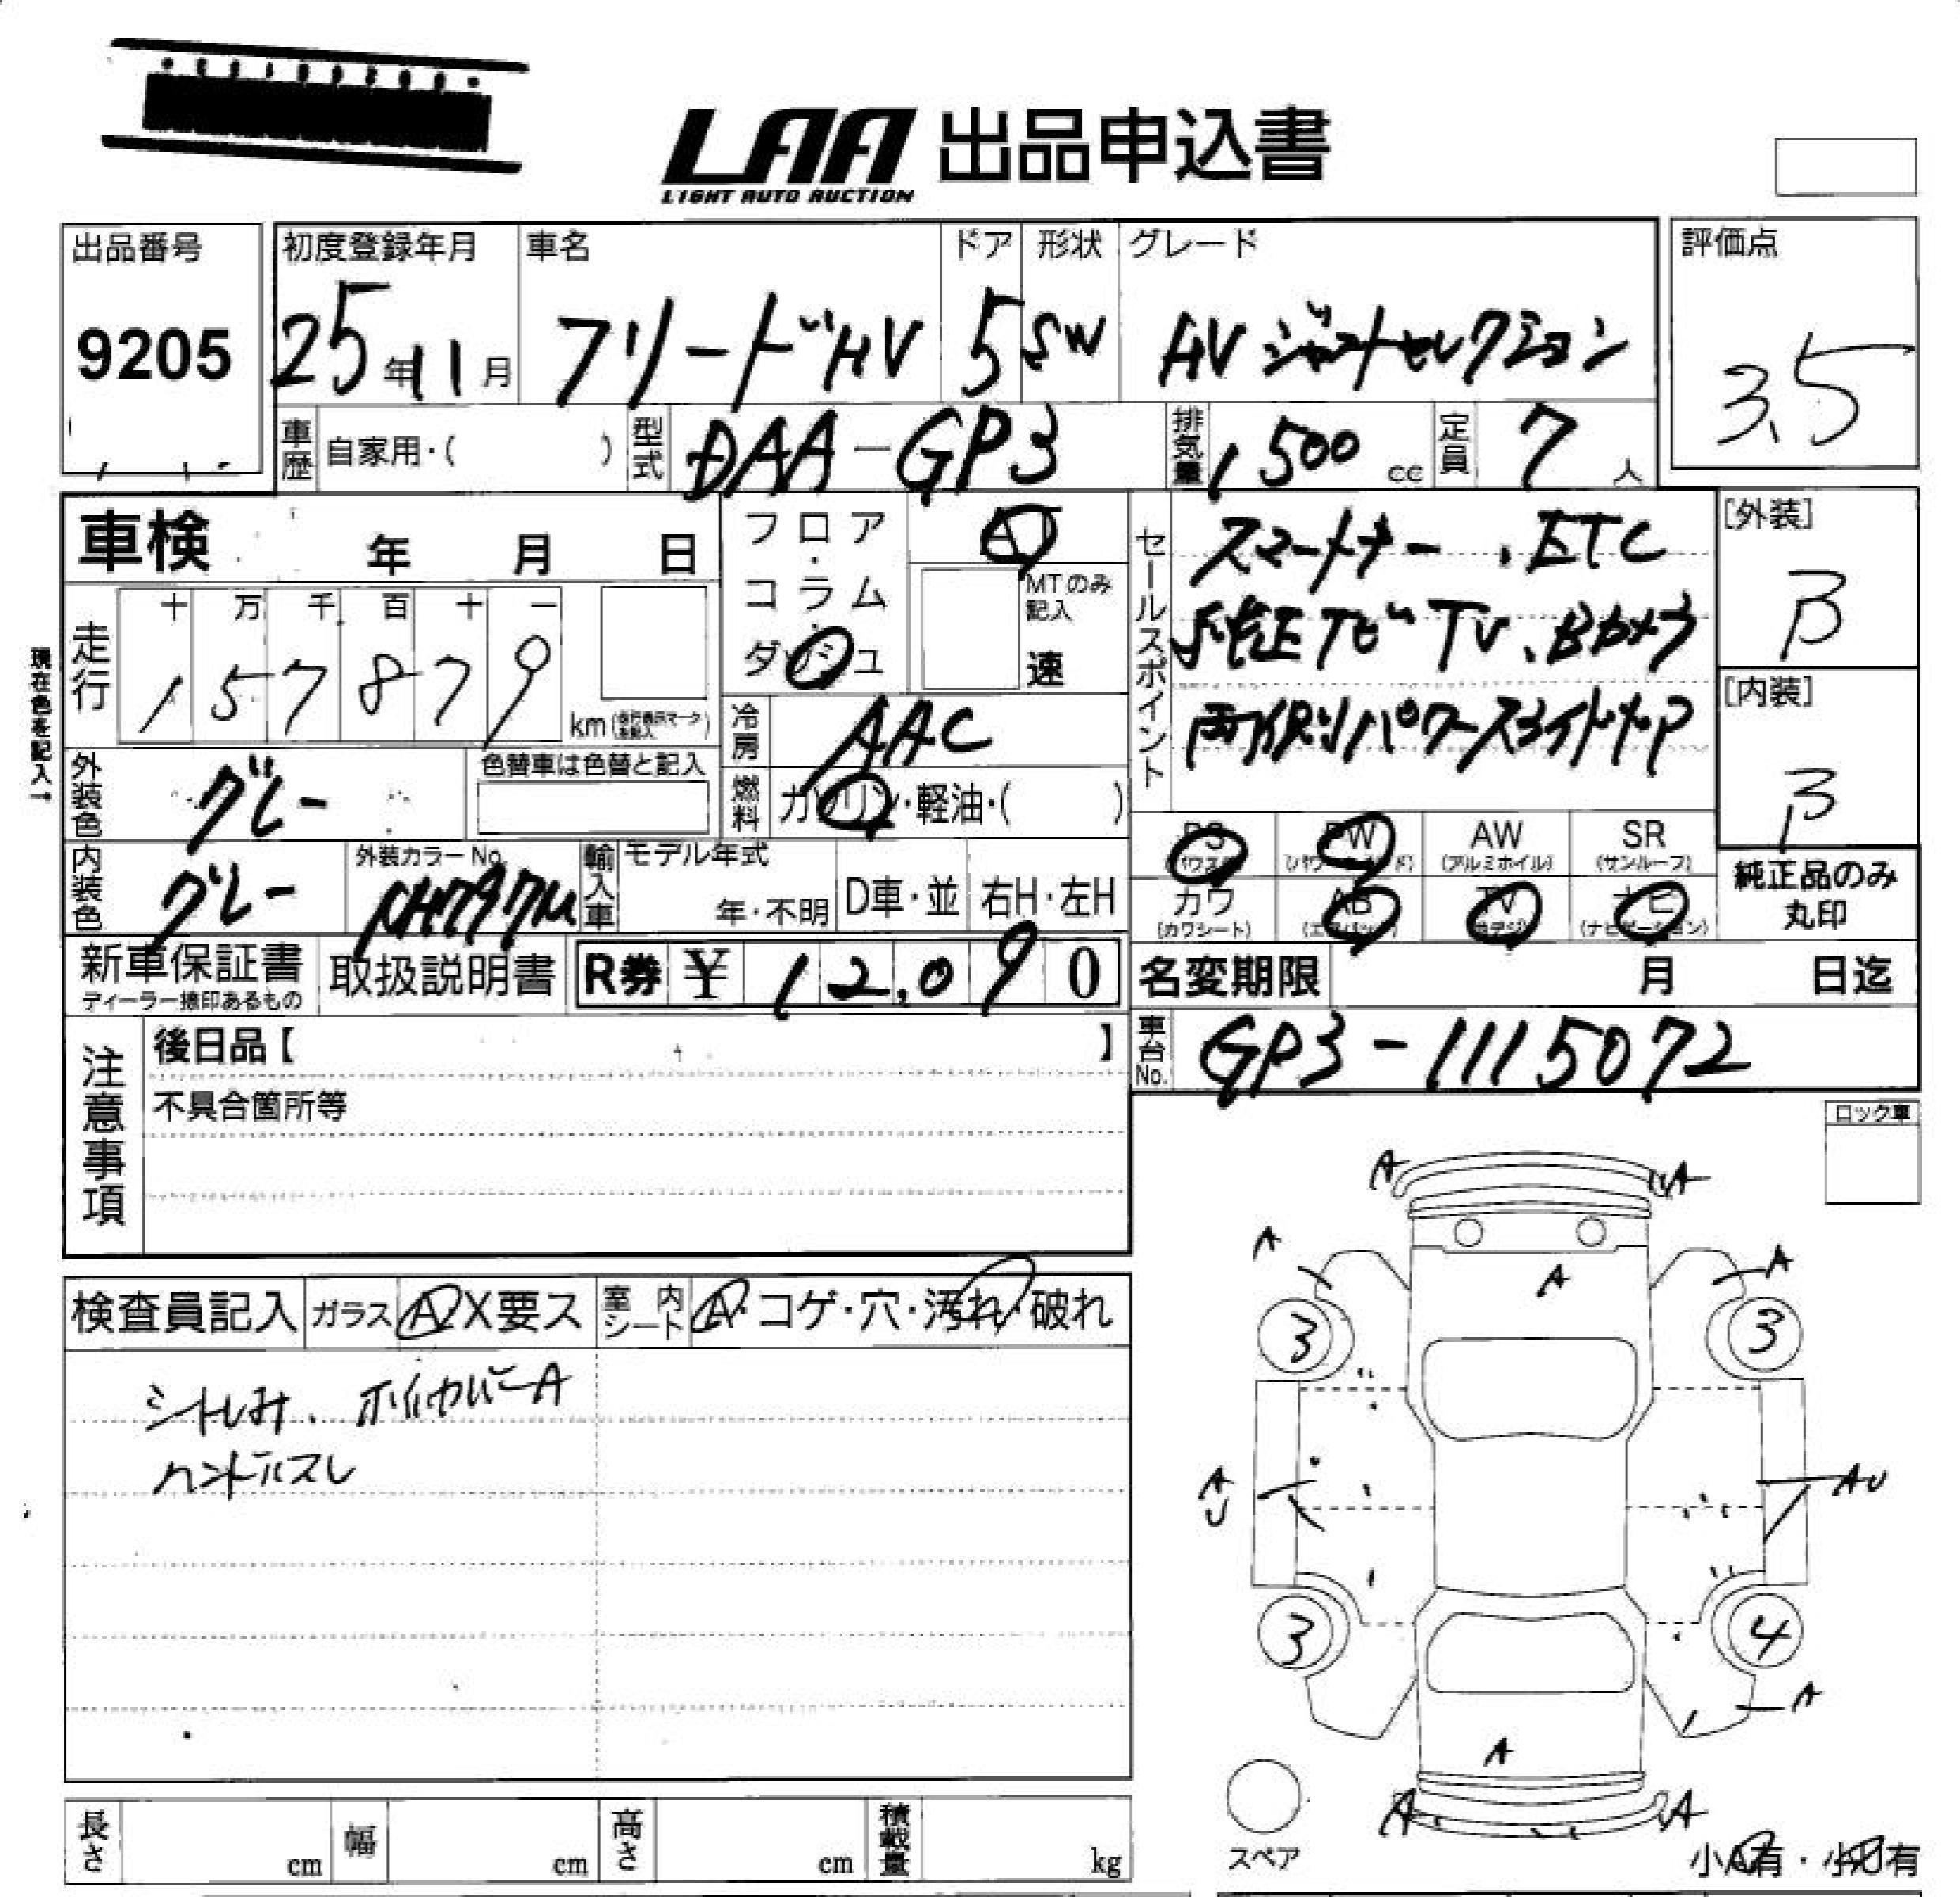 LAA 出品申込書
LIGHT AUTO AUCTION
出品番号
9205
初度登録年月
25年11月
車名
フリードHV
ドア
5
形状
SW
グレード
HV ジャストセレクション
評価点
3.5
車歴 自家用・( )
型式 DAA-GP3
排気量 1500cc
定員 7人
車検 年 月 日
フロア・コラム・ダッシュ
AT
MTのみ記入
速
セールスポイント
スマートキー、ETC
純正ナビTV、Bカメラ
両側パワースライドドアP
[外装]
B
[内装]
B
現在色を記入→
走行
十 万 千 百 十 一
157879
km(走行表示マークを記入)
冷房 AAC
外装色 グレー
色替車は色替と記入
燃料 ガソリン・軽油・( )
PS(パワステ) PW(パワーウインド) AW(アルミホイル) SR(サンルーフ)
カワ(カワシート) AB(エアバッグ) TV(地デジ) ナビ(ナビゲーション)
純正品のみ丸印
内装色 グレー
外装カラーNo. NH797M
輸入車 モデル年式 年・不明 D車・並 右H・左H
新車保証書
ディーラー捺印あるもの
取扱説明書
R券 ¥ 12,090
名変期限 月 日迄
車台No. GP3-1115072
注意事項
後日品【 】
不具合箇所等
ロック車
検査員記入 ガラス A X要ス 室内シート A・コゲ・穴・汚れ・破れ
シートしみ、ホイルカバーA
ハンドルスレ
A A
A A
A
3 3
AU AU
3 4
A
A
A A
スペア
小A有・小U有
長さ cm 幅 cm 高さ cm 積載量 kg